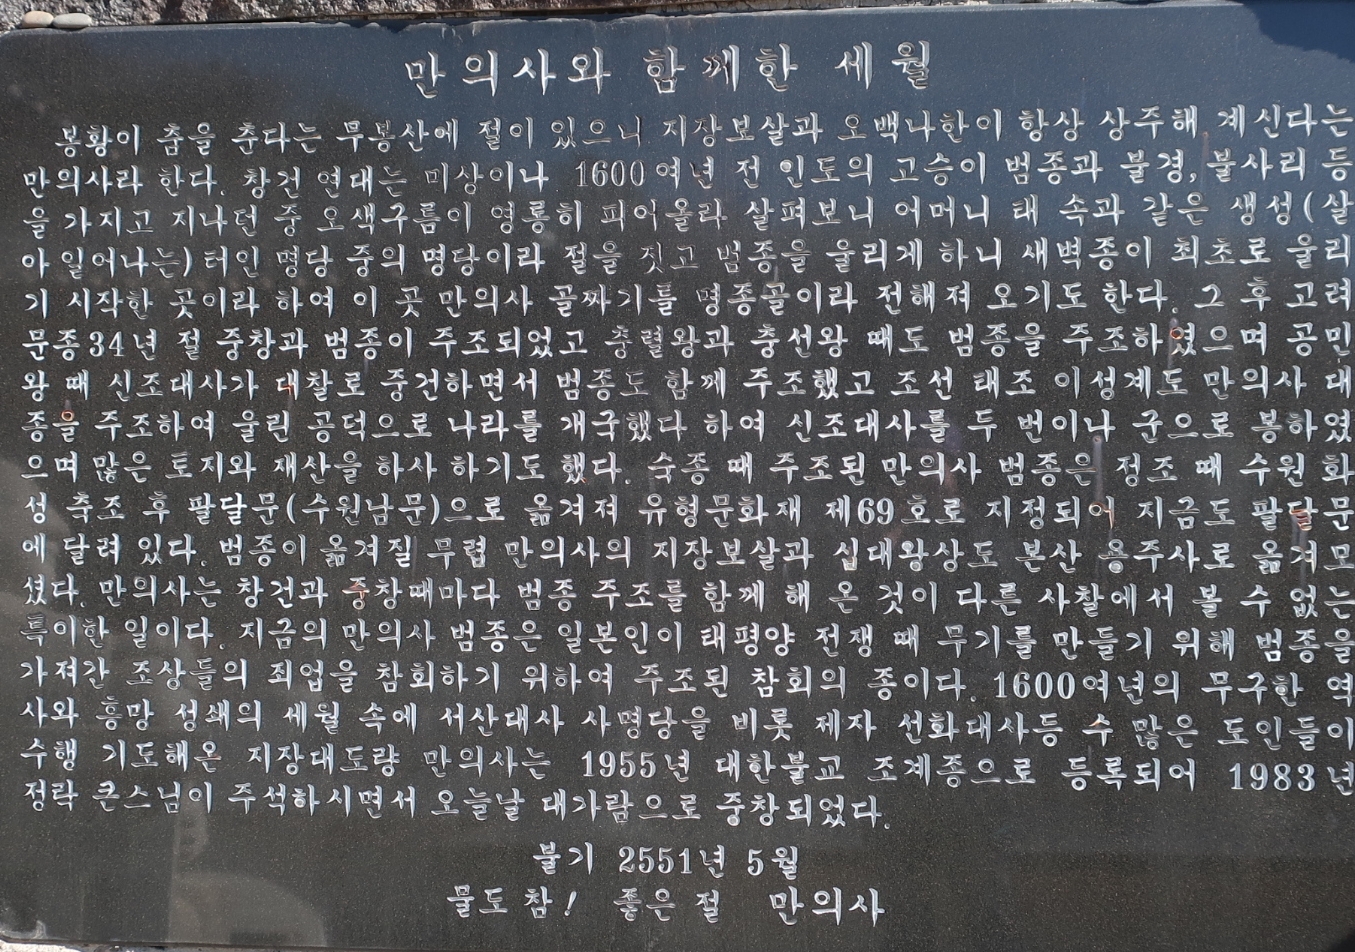 만의사와 함께한 세월
봉황이 춤을 춘다는 무봉산에 절이 있으니 지장보살과 오백나한이 항상 상주해 계신다는
만의사라 한다. 창건 연대는 미상이나 1600여년 전 인도의 고승이 범종과 불경, 불사리 등
을 가지고 지나던 중 오색구름이 영롱히 피어올라 살펴보니 어머니 태 속과 같은 생성(살
아 일어나는)터인 명당 중의 명당이라 절을 짓고 범종을 울리게 하니 새벽종이 최초로 울리
기 시작한 곳이라 하여 이 곳 만의사 골짜기를 명종골이라 전해져 오기도 한다. 그 후 고려
문종34년 절 중창과 범종이 주조되었고 충렬왕과 충선왕 때도 범종을 주조하였으며 공민
왕 때 신조대사가 대찰로 중건하면서 범종도 함께 주조했고 조선 태조 이성계도 만의사 대
종을 주조하여 울린 공덕으로 나라를 개국했다 하여 신조대사를 두 번이나 군으로 봉하였
으며 많은 토지와 재산을 하사 하기도 했다. 숙종 때 주조된 만의사 범종은 정조 때 수원 화
성 축조 후 팔달문(수원남문)으로 옮겨져 유형문화재 제69호로 지정되어 지금도 팔달문
에 달려 있다. 범종이 옮겨질 무렵 만의사의 지장보살과 십대왕상도 본산 용주사로 옮겨모
셨다. 만의사는 창건과 중창때마다 범종 주조를 함께 해 온 것이 다른 사찰에서 볼 수 없는
특이한 일이다. 지금의 만의사 범종은 일본인이 태평양 전쟁 때 무기를 만들기 위해 범종을
가져간 조상들의 죄업을 참회하기 위하여 주조된 참회의 종이다. 1600여년의 무구한 역
사와 흥망 성쇄의 세월 속에 서산대사 사명당을 비롯 제자 선화대사등 수 많은 도인들이
수행 기도해온 지장대도량 만의사는 1955년 대한불교 조계종으로 등록되어 1983년
정락 큰스님이 주석하시면서 오늘날 대가람으로 중창되었다.
불기 2551년 5월
물도 참! 좋은 절 만의사